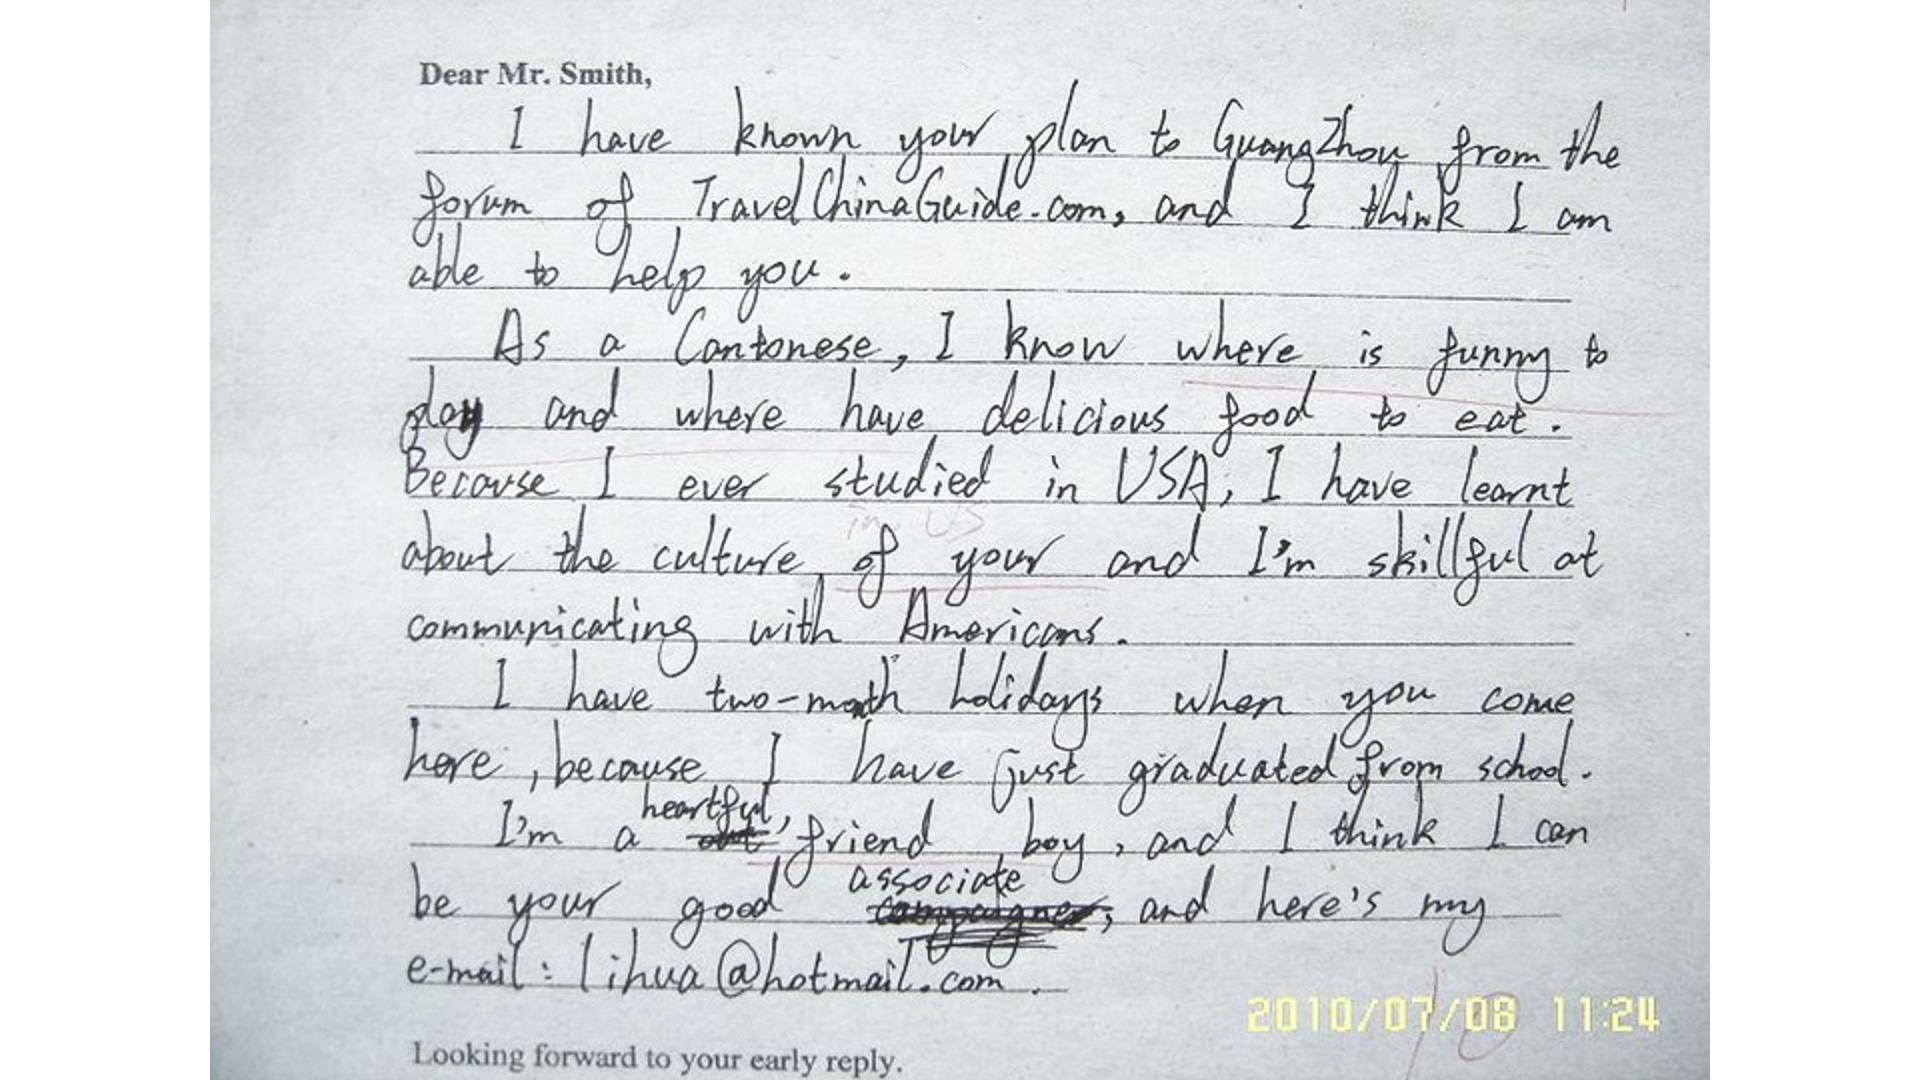 Dear Mr. Smith,
I have known your plan to GuangZhou from the
forum of TravelChinaGuide.com, and I think I am
able to help you.
As a Cantonese, I know where is funny to
play and where have delicious food to eat.
Because I ever studied in USA, I have learnt
in US
about the culture of your and I'm skillful at
communicating with Americans.
I have two-moth holidays when you come
here, because I have just graduated from school.
heartful,
I'm a friend boy, and I think I can
associate
be your good and here's my
e-mail: lihua@hotmail.com.
10
2010/07/08 11:24
Looking forward to your early reply.